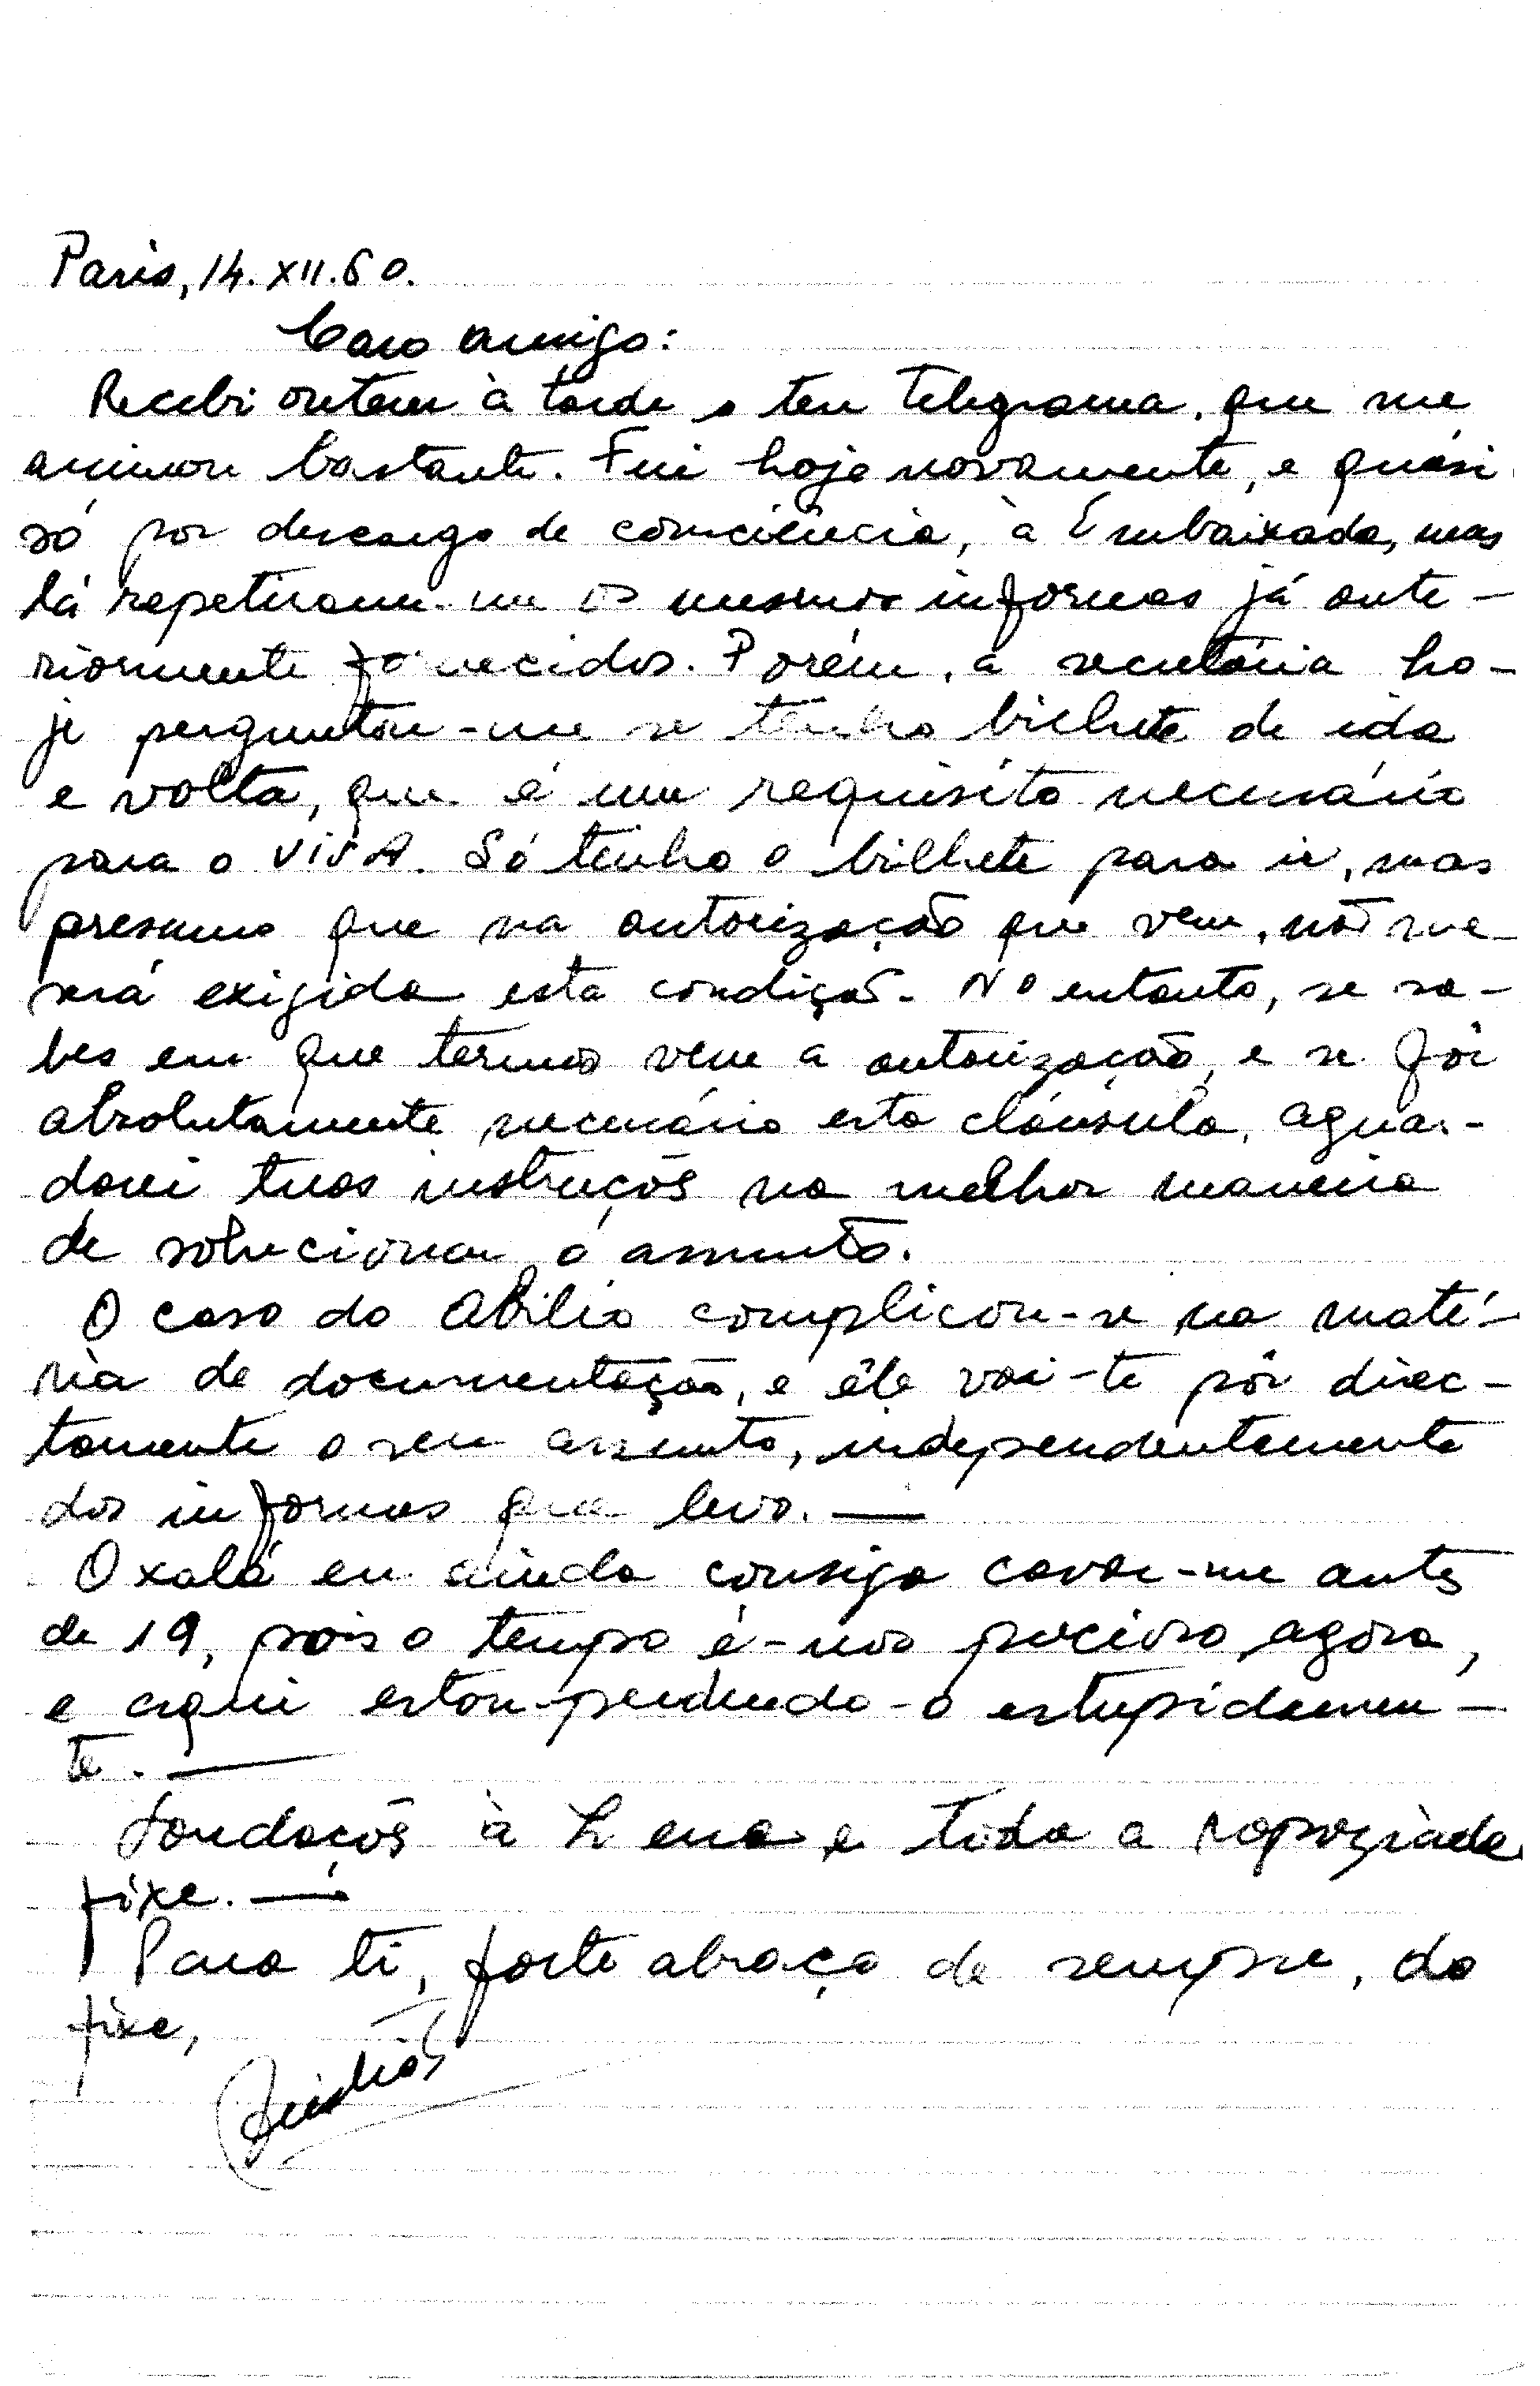 Paris, 14.XII.60.
Caro amigo:
Recebi ontem à tarde o teu telegrama, que me
animou bastante. Fui hoje novamente, e quási
só por descargo de consciência, à Embaixada, mas
lá repetiram-me os mesmos informes já ante-
riormente fornecidos. Porém, a secretária ho-
je perguntou-me se tenho bilhete de ida
e volta, que é um requisito necessário
para o VISA. Só tenho o bilhete para ir, mas
presumo que na autorização que vem, não me
será exigida esta condição. No entanto, se sa-
bes em que termos vem a autorização, e se fôr
absolutamente necessário esta cláusula, aguar-
darei tuas instruções na melhor maneira
de solucionar o assunto.
O caso do Abílio complicou-se na maté-
ria de documentação, e êle vai-te pôr direc-
tamente o seu assunto, independentemente
dos informes que levo. —
Oxalá eu ainda consiga cavar-me antes
de 19, pois o tempo é-nos precioso agora,
e aqui estou perdendo-o estupidamen-
te. —
Saudações à Lena e toda a rapaziada
fixe. —
Para ti, forte abraço de sempre, do
fixe,